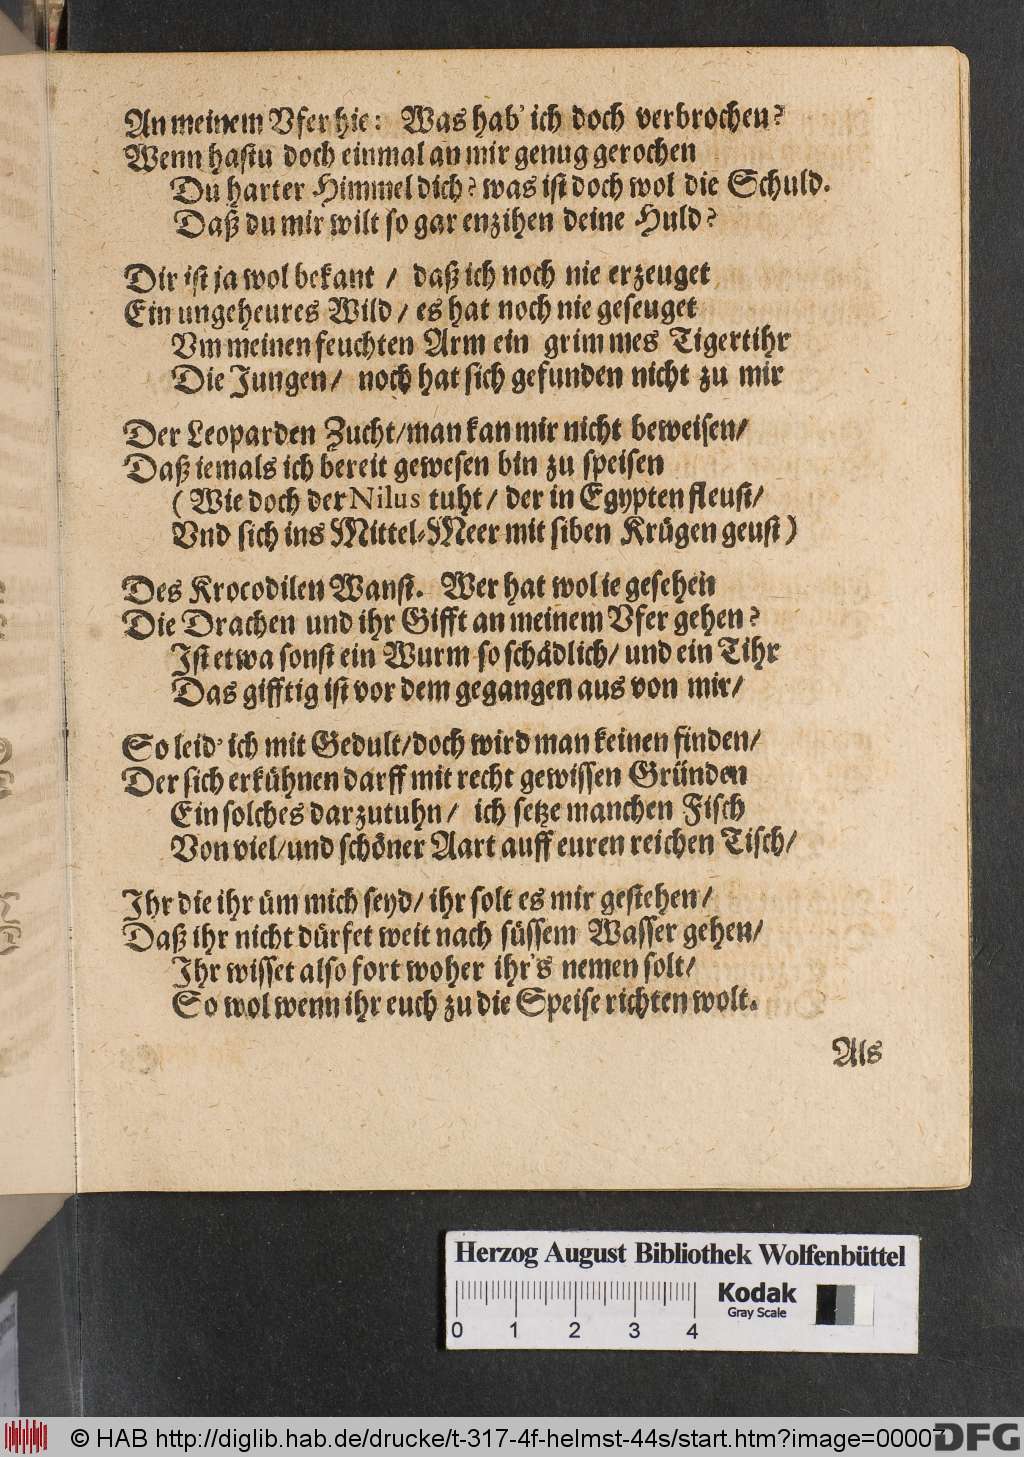 An meinem Vfer hie: Was hab' ich doch verbrochen?
Wenn hastu doch einmal an mir genug gerochen
Du harter Himmel dich? was ist doch wol die Schuld.
Daß du mir wilt so gar enzihen deine Huld?
Dir ist ja wol bekant / daß ich noch nie erzeuget
Ein ungeheures Wild / es hat noch nie geseuget
Vm meinen feuchten Arm ein grimmes Tigertihr
Die Jungen / noch hat sich gefunden nicht zu mir
Der Leoparden Zucht / man kan mir nicht beweisen /
Daß iemals ich bereit gewesen bin zu speisen
( Wie doch der Nilus tuht / der in Egypten fleust /
Vnd sich ins Mittel-Meer mit siben Krügen geust )
Des Krocodilen Wanst. Wer hat wol ie gesehen
Die Drachen und ihr Gifft an meinem Vfer gehen?
Ist etwa sonst ein Wurm so schädlich / und ein Tihr
Das gifftig ist vor dem gegangen aus von mir /
So leid' ich mit Gedult / doch wird man keinen finden /
Der sich erkühnen darff mit recht gewissen Gründen
Ein solches darzutuhn / ich setze manchen Fisch
Von viel / und schöner Aart auff euren reichen Tisch /
Ihr die ihr üm mich seyd / ihr solt es mir gestehen /
Daß ihr nicht dürfet weit nach süssem Wasser gehen /
Ihr wisset also fort woher ihr's nemen solt /
So wol wenn ihr euch zu die Speise richten wolt.
Als
Herzog August Bibliothek Wolfenbüttel
Kodak
Gray Scale
0 1 2 3 4
© HAB http://diglib.hab.de/drucke/t-317-4f-helmst-44s/start.htm?image=00007
DFG